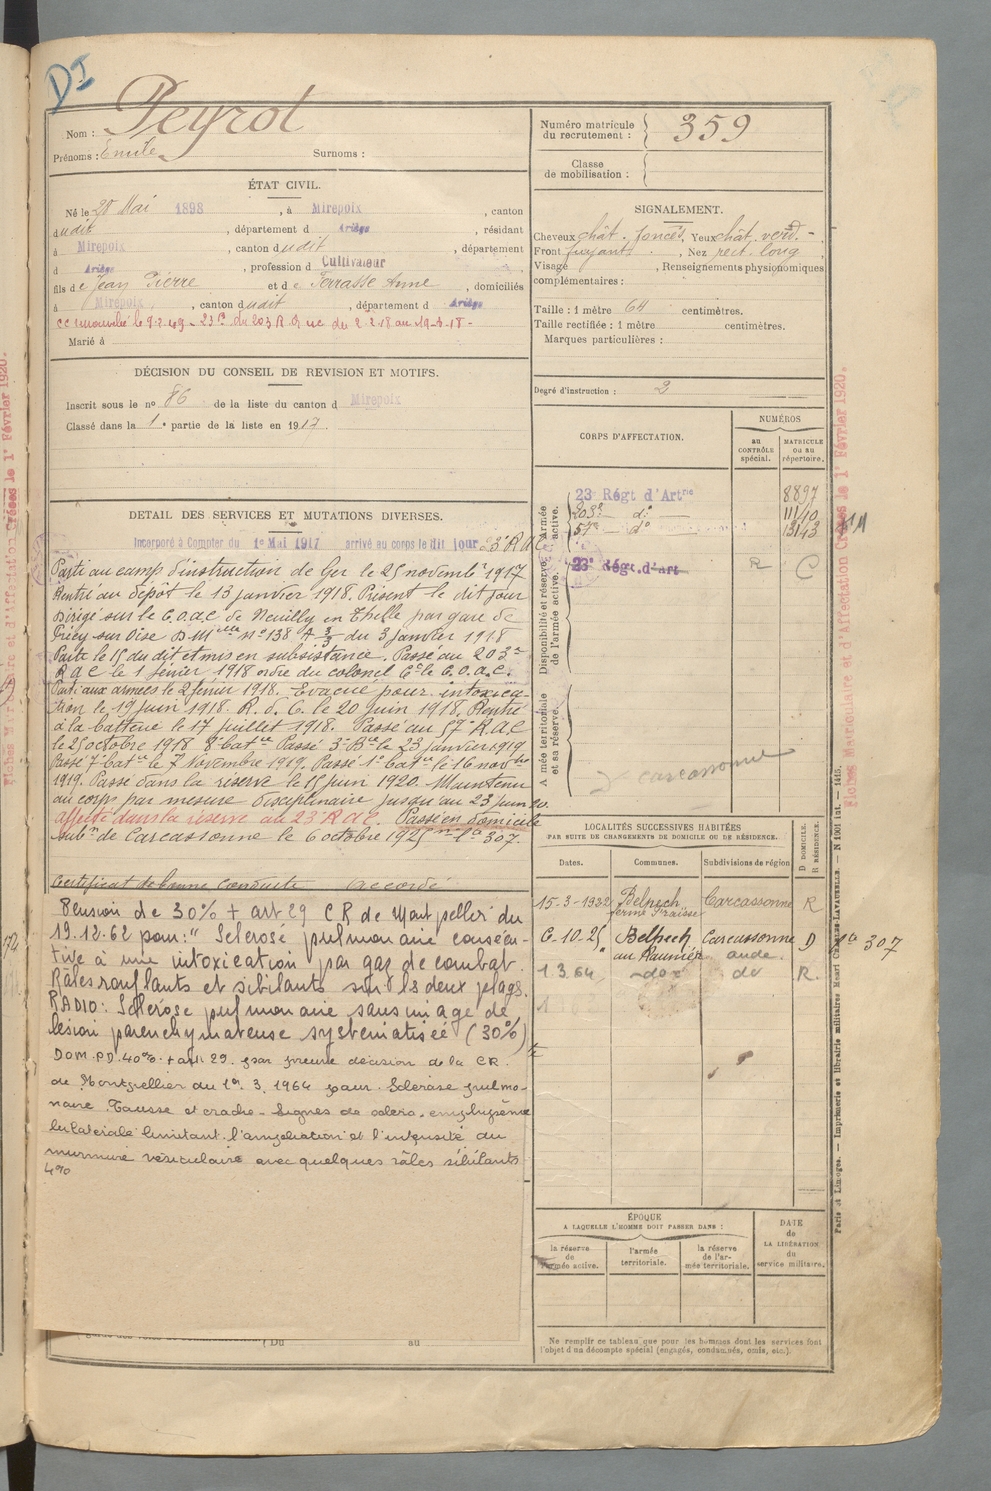 DI
Nom : Peyrot
Prénoms : Emile Surnoms :
ÉTAT CIVIL.
Né le 20 Mai 1898, à Mirepoix, canton
dudit, département d Ariège, résidant
à Mirepoix, canton dudit, département
d Ariège, profession d Cultivateur
fils de Jean Pierre et de Terrasse Anne, domiciliés
à Mirepoix, canton dudit, département d Ariège
le 9.2.49 - 23e du 203 R.A. du 2.2.18 au 19-3-18-
Marié à
DÉCISION DU CONSEIL DE REVISION ET MOTIFS.
Inscrit sous le no 86 de la liste du canton d Mirepoix
Classé dans la 1e partie de la liste en 1917
DETAIL DES SERVICES ET MUTATIONS DIVERSES.
Incorporé à Compter du 1er Mai 1917 arrivé au corps le dit jour 23e R A C
Parti au camp d'instruction de Ger le 25 novembre 1917
Rentré au dépôt le 13 janvier 1918. Présent le dit jour
Dirigé sur le C.O.A.C. de Neuilly en Thelle par gare de
Précy sur Oise D.M no 138 A 3/3 du 3 janvier 1918
Parti le 15 du dit et mis en subsistance. Passé au 203e
R A C le 1 février 1918 ordre du colonel Ct le C.O.A.C.
Parti aux armées le 2 février 1918. Evacué pour intoxica-
tion le 19 juin 1918. R. d. C. le 20 juin 1918. Rentré
à la batterie le 17 juillet 1918. Passé au 57e R.A.C
le 25 octobre 1918 8e batrie Passé 3e Brie le 23 janvier 1919
Passé 7e batrie le 7 Novembre 1919. Passé 1e batrie le 16 novbre
1919. Passé dans la réserve le 15 juin 1920. Maintenu
au corps par mesure disciplinaire jusqu'au 23 juin 20.
affecté dans la réserve au 23e R.A.C. Passé en domicile
subon de Carcassonne le 6 octobre 1925 no 1a 307.
Certificat de bonne conduite accordé
Pension de 30% + art 29 C R de Montpellier du
19.12.62 pour: " Sclérose pulmonaire consécu-
tive à une intoxication par gaz de combat.
Râles ronflants et sibilants sur les deux plages.
RADIO: Sclérose pulmonaire sans image de
lésion parenchymateuse systématisée (30%)
DOM. PD. 40% + art. 29. par décision de la CR.
de Montpellier du 1er. 3. 1964 pour. Sclérose pulmo-
naire. Tousse et crache - Signes de scléro. emphysème
bilatérale limitant l'ampliation et l'intensité du
murmure vésiculaire avec quelques râles sibilants
4%
( Du au
Numéro matricule du recrutement : 359
Classe de mobilisation :
SIGNALEMENT.
Cheveux chât. foncés, Yeux chât. verd.-
Front fuyant, Nez rect. long
Visage , Renseignements physionomiques
complémentaires :
Taille : 1 mètre 64 centimètres.
Taille rectifiée : 1 mètre centimètres.
Marques particulières :
Degré d'instruction : 2
CORPS D'AFFECTATION.
NUMÉROS
au CONTRÔLE spécial.
MATRICULE ou au répertoire.
Armée active.
23e Régt d'Artrie 8897
203e do 11110
57e do 13143
Disponibilité et réserve de l'armée active.
23e Régt. d'Art R C
Armée territoriale et sa réserve.
Carcassonne
LOCALITÉS SUCCESSIVES HABITÉES
PAR SUITE DE CHANGEMENTS DE DOMICILE OU DE RÉSIDENCE.
Dates. Communes. Subdivisions de région D DOMICILE. R RÉSIDENCE.
15-3-1922 Belpech Carcassonne R
ferme
6-10-25 Belpech Carcassonne D 1a 307
au aude.
1 3 64 do R.
ÉPOQUE
A LAQUELLE L'HOMME DOIT PASSER DANS :
la réserve de l'armée active.
l'armée territoriale.
la réserve de l'armée territoriale.
DATE de LA LIBÉRATION du service militaire.
Ne remplir ce tableau que pour les hommes dont les services font
l'objet d'un décompte spécial (engagés, condamnés, omis, etc.).
Fiches Matriculaire et d'Affectation Créées le 1er Février 1920.
Paris et Limoges. — Imprimerie et librairie militaires Henri Charles-Lavauzelle.